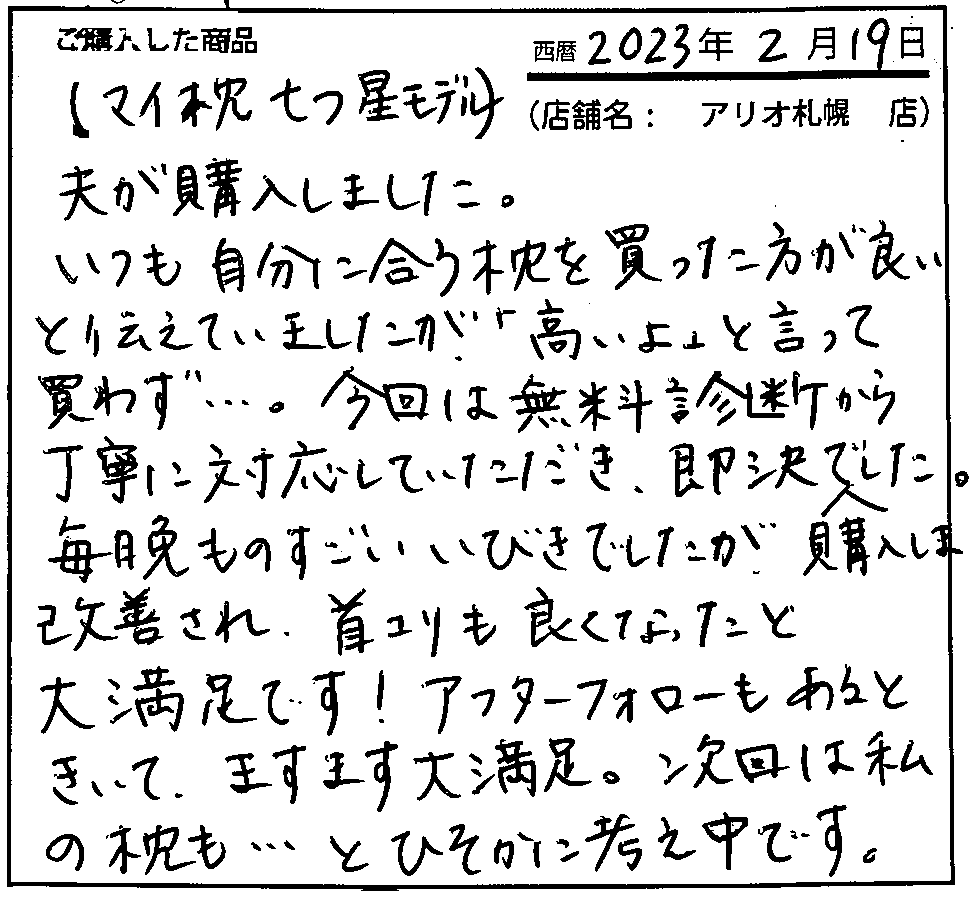 ご購入した商品
西暦 2023年 2月19日
【マイ枕 七つ星モデル】
(店舗名： アリオ札幌 店)
夫が購入しました。
いつも自分に合う枕を買った方が良い
と伝えていましたが「高いよ」と言って
買わず…。今回は無料診断から
丁寧に対応していただき、即決でした。
毎日晩ものすごいいびきでしたが 購入しま
改善され、首コリも良くなったと
大満足です！アフターフォローもあると
きいて、ますます大満足。次回は私
の枕も…とひそかに考え中です。